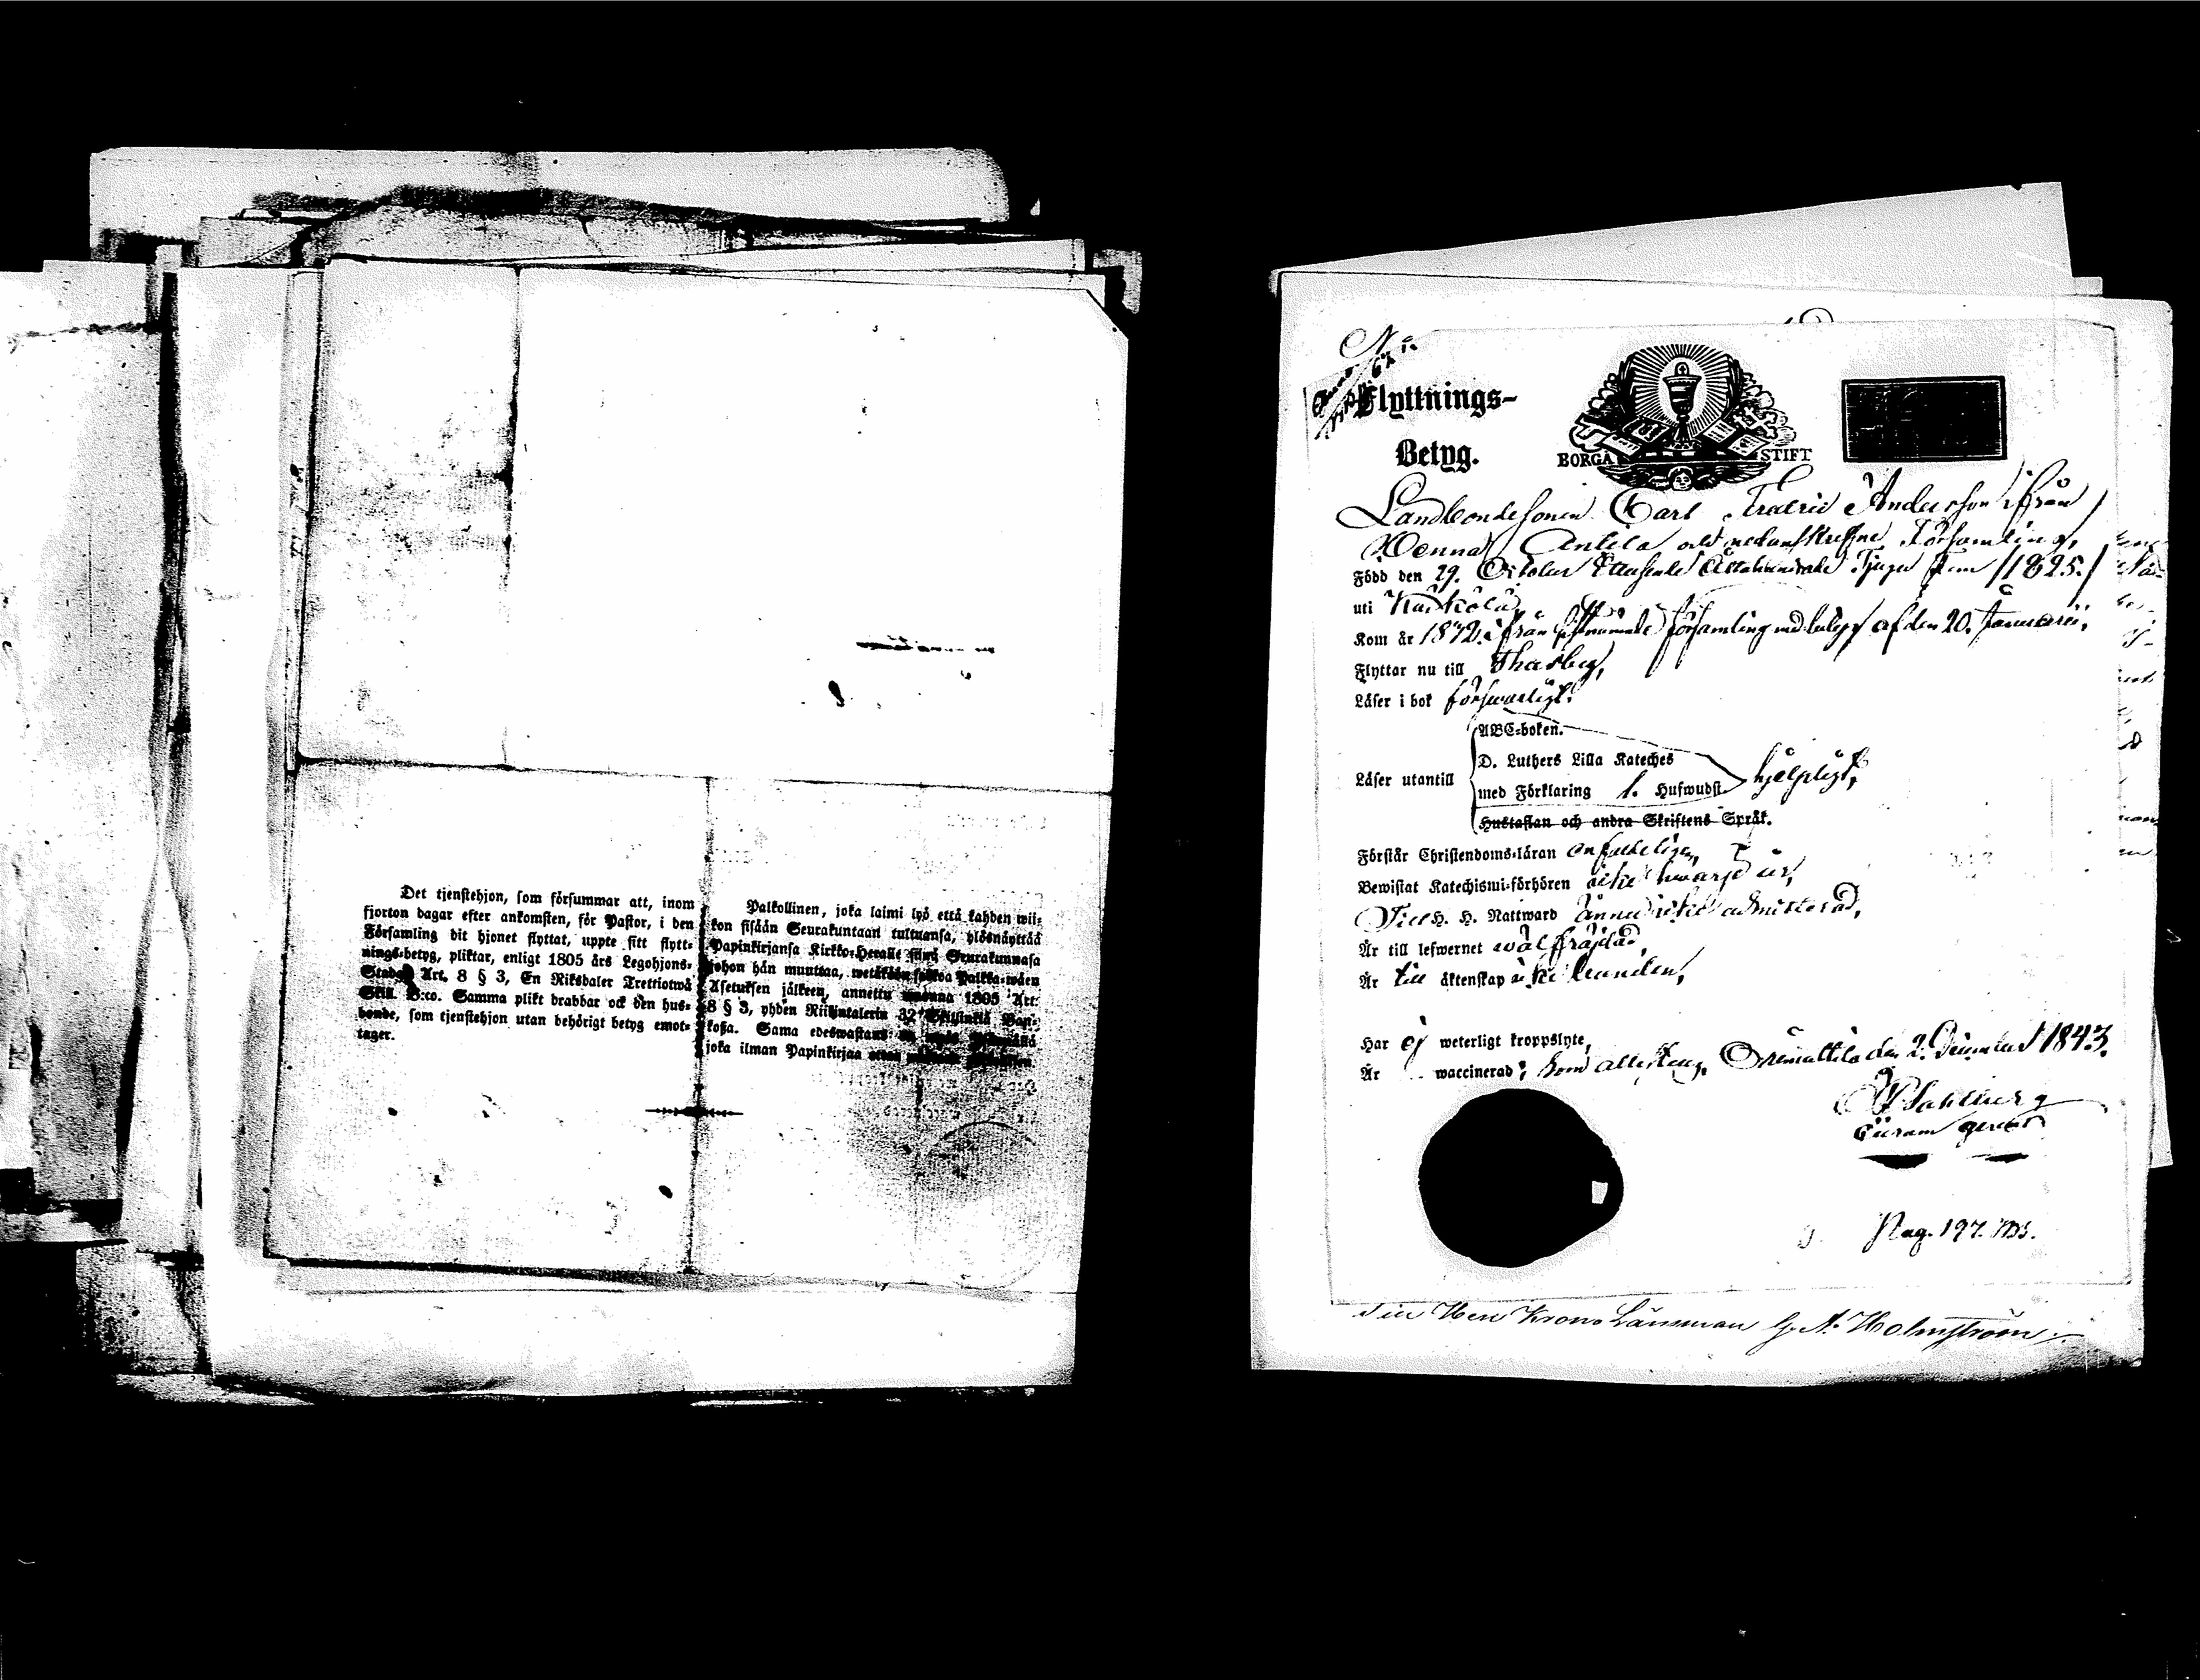 Det tjenstehjon, som försummar att, inom
fjorton dagar efter ankomsten, för Pastor, i den
Församling dit hjonet flyttat, uppte sitt flytt-
nings-betyg, pliktar, enligt 1805 års Legohjons-
Stadga Art. 8 § 3, En Riksdaler Trettiotwå
Skill. B:co. Samma plikt drabbar ock den hus-
bonde, som tjenstehjon utan behörigt betyg emot-
tager.
Palkollinen, joka laimi lyö että kahden wii-
kon sisään Seurakuntaan tultuansa, ylösnäyttää
Papinkirjansa Kirkko-Herralle siinä Seurakunnasa
johon hän muuttaa, palkka-wäen
Asetuksen jälkeen, annettu wuonna 1805 Art:
8 § 3, yhden Riikintalerin 32 Skillinkiä Ban-
koßa. Sama edeswastaus
joka ilman Papinkirjaa
N:o
Flyttnings-
Betyg.
BORGÅ STIFT
Landbondesonen Carl Fredric Andersson ifrån
Wenna Anttila och nedanskrefne Församling,
Född den 29. October Ettusende Åttahundrade Tjugu Fem /1825./
uti Kärkölä,
Kom år 1842. ifrån sistnämnde församling med betyg af den 20. Januarii,
Flyttar nu till Thusby,
Läser i bok försvarligt.
ABC-boken.
D. Luthers Lilla Kateches
Läser utantill
med Förklaring 1. Hufwudst. hjelpligt,
Hustaflan och andra Skriftens Språk.
Förstår Christendoms-läran enfaldeligen,
Bewistat Katechismi-förhören icke hwarje år,
Till H. H. Nattward ännu icke admitterad,
Är till lefwernet wälfräjdad,
Är till äktenskap icke bunden,
Har ej weterligt kroppslyte,
Är waccinerad; Som attesteras, Orimattila den 2. December 1843.
Curam gerens
Pag. 197.
Till Herr Krono Länsman G. A. Holmström.